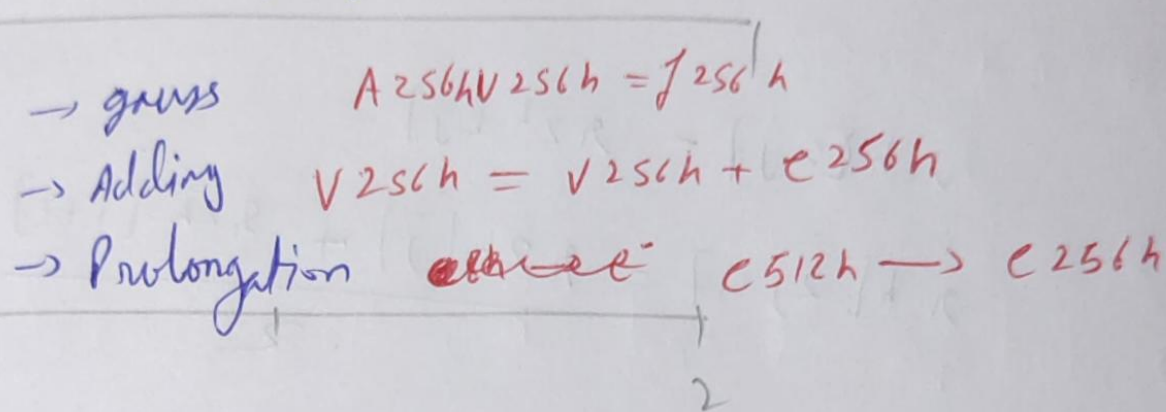 → gauss A256hV256h = f256h
→ Adding V256h = V256h + e256h
→ Prolongation e512h → e256h
2